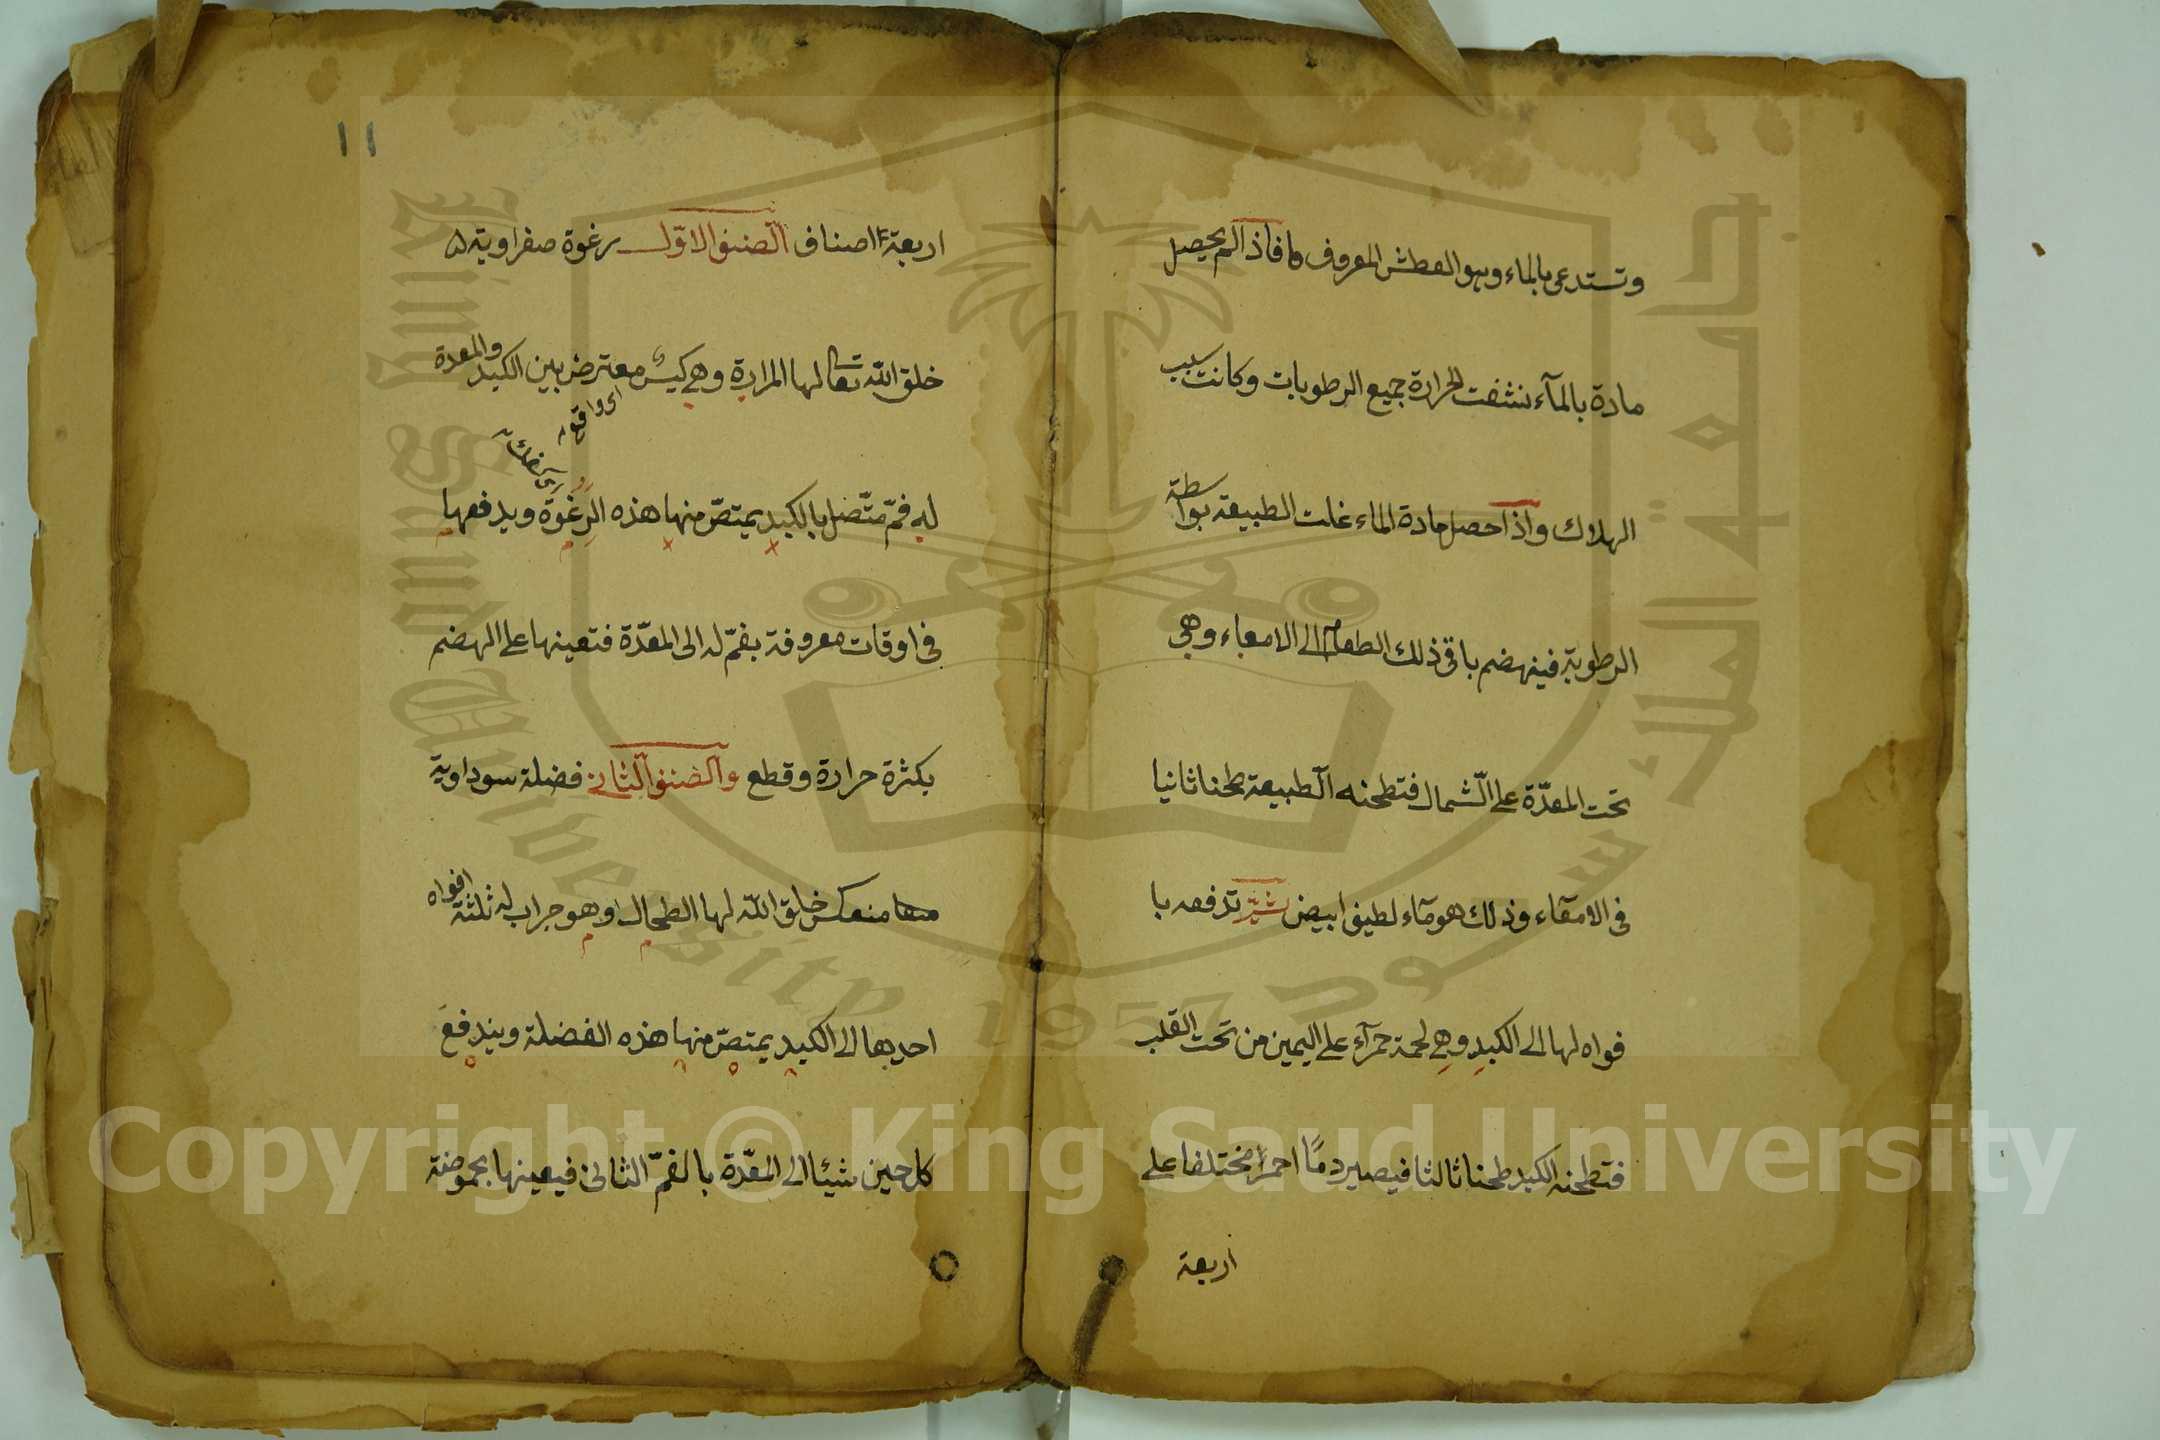 وتستدعى بالماء وهو العطش المعروف فاذا لم يحصل
مادة بالمآء نشفت الحرارة جميع الرطوبات وكانت سبب
الهلاك واذا حصل مادة الماء غلت الطبيعة بواسطة
الرطوبة فينهضم باقى ذلك الطعام الى الامعاء وهى
تحت المعدّة على الشمال فتطحنه الطبيعة طحنا ثانيا
فى الامعاء وذلك هو مآء لطيف ابيض ثم تدفعه با
فواه لها الى الكبد وهى لحمة حمرآء على اليمين من تحت القلب
فتطحنه الكبد طحنا ثالثا فيصير دمًا احمرا مختلفا على
اربعة
١١
اربعة اصناف الصنف الاوّل رغوة صفراوية
خلق الله تعالى لها المرارة وهى كيس معترض بين الكبد والمعدة
اى واقع
له فمّ متّصل بالكبد يمتصّ منها هذه الرغوة ويدفعها
فى اوقات معروفة بفمّ له الى المعدّة فتعينها على الهضم
بكثرة حرارة وقطع والصنف الثانى فضلة سوداوية
خلق الله لها الطحال وهو جراب له ثلثة افواه
احديها الى الكبد يمتصّ منها هذه الفضلة ويندفع
كل حين شيئا الى المعدّة بالفمّ الثانى فيعينها بحموضة
جامعة الملك سعود
King Saud University
1957
Copyright © King Saud University